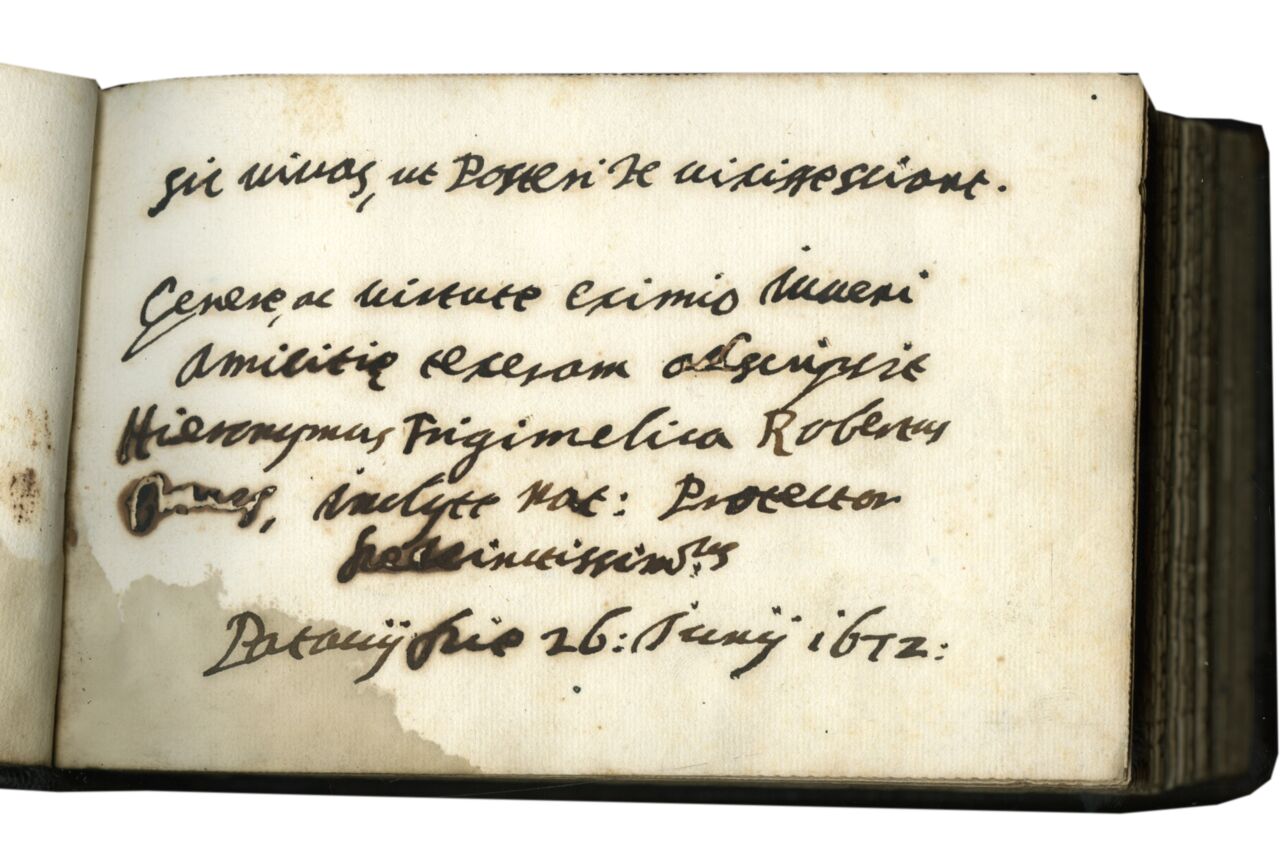 sic uiuas, ut Posteri te uixisse sciant.
Genere, ac uirtute eximio Iuueni
Amicitię tesseram adscripsit
Hieronymus Frigimelica Robertus
Comes, inclytę Nat: Protector
Patauij Die 26: Iunij 1672: